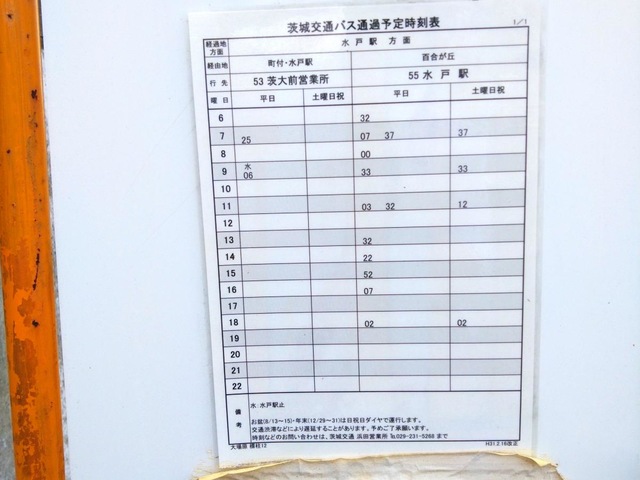 茨城交通バス通過予定時刻表 1/1
経過地方面 水戸駅 方面
経由地 町付・水戸駅 百合が丘
行先 53 茨大前営業所 55 水戸駅
曜日 平日 土曜日祝 平日 土曜日祝
6 32
7 25 07 37 37
8 00
9 水 06 33 33
10
11 03 32 12
12
13 32
14 22
15 52
16 07
17
18 02 02
19
20
21
22
備考 水:水戸駅止
お盆(8/13~15)・年末(12/29~31)は日祝日ダイヤで運行します。
交通渋滞などにより遅延することがあります。予めご了承願います。
時刻などのお問い合わせは、茨城交通 浜田営業所 ℡029-231-5268 まで
H31.2.16改正